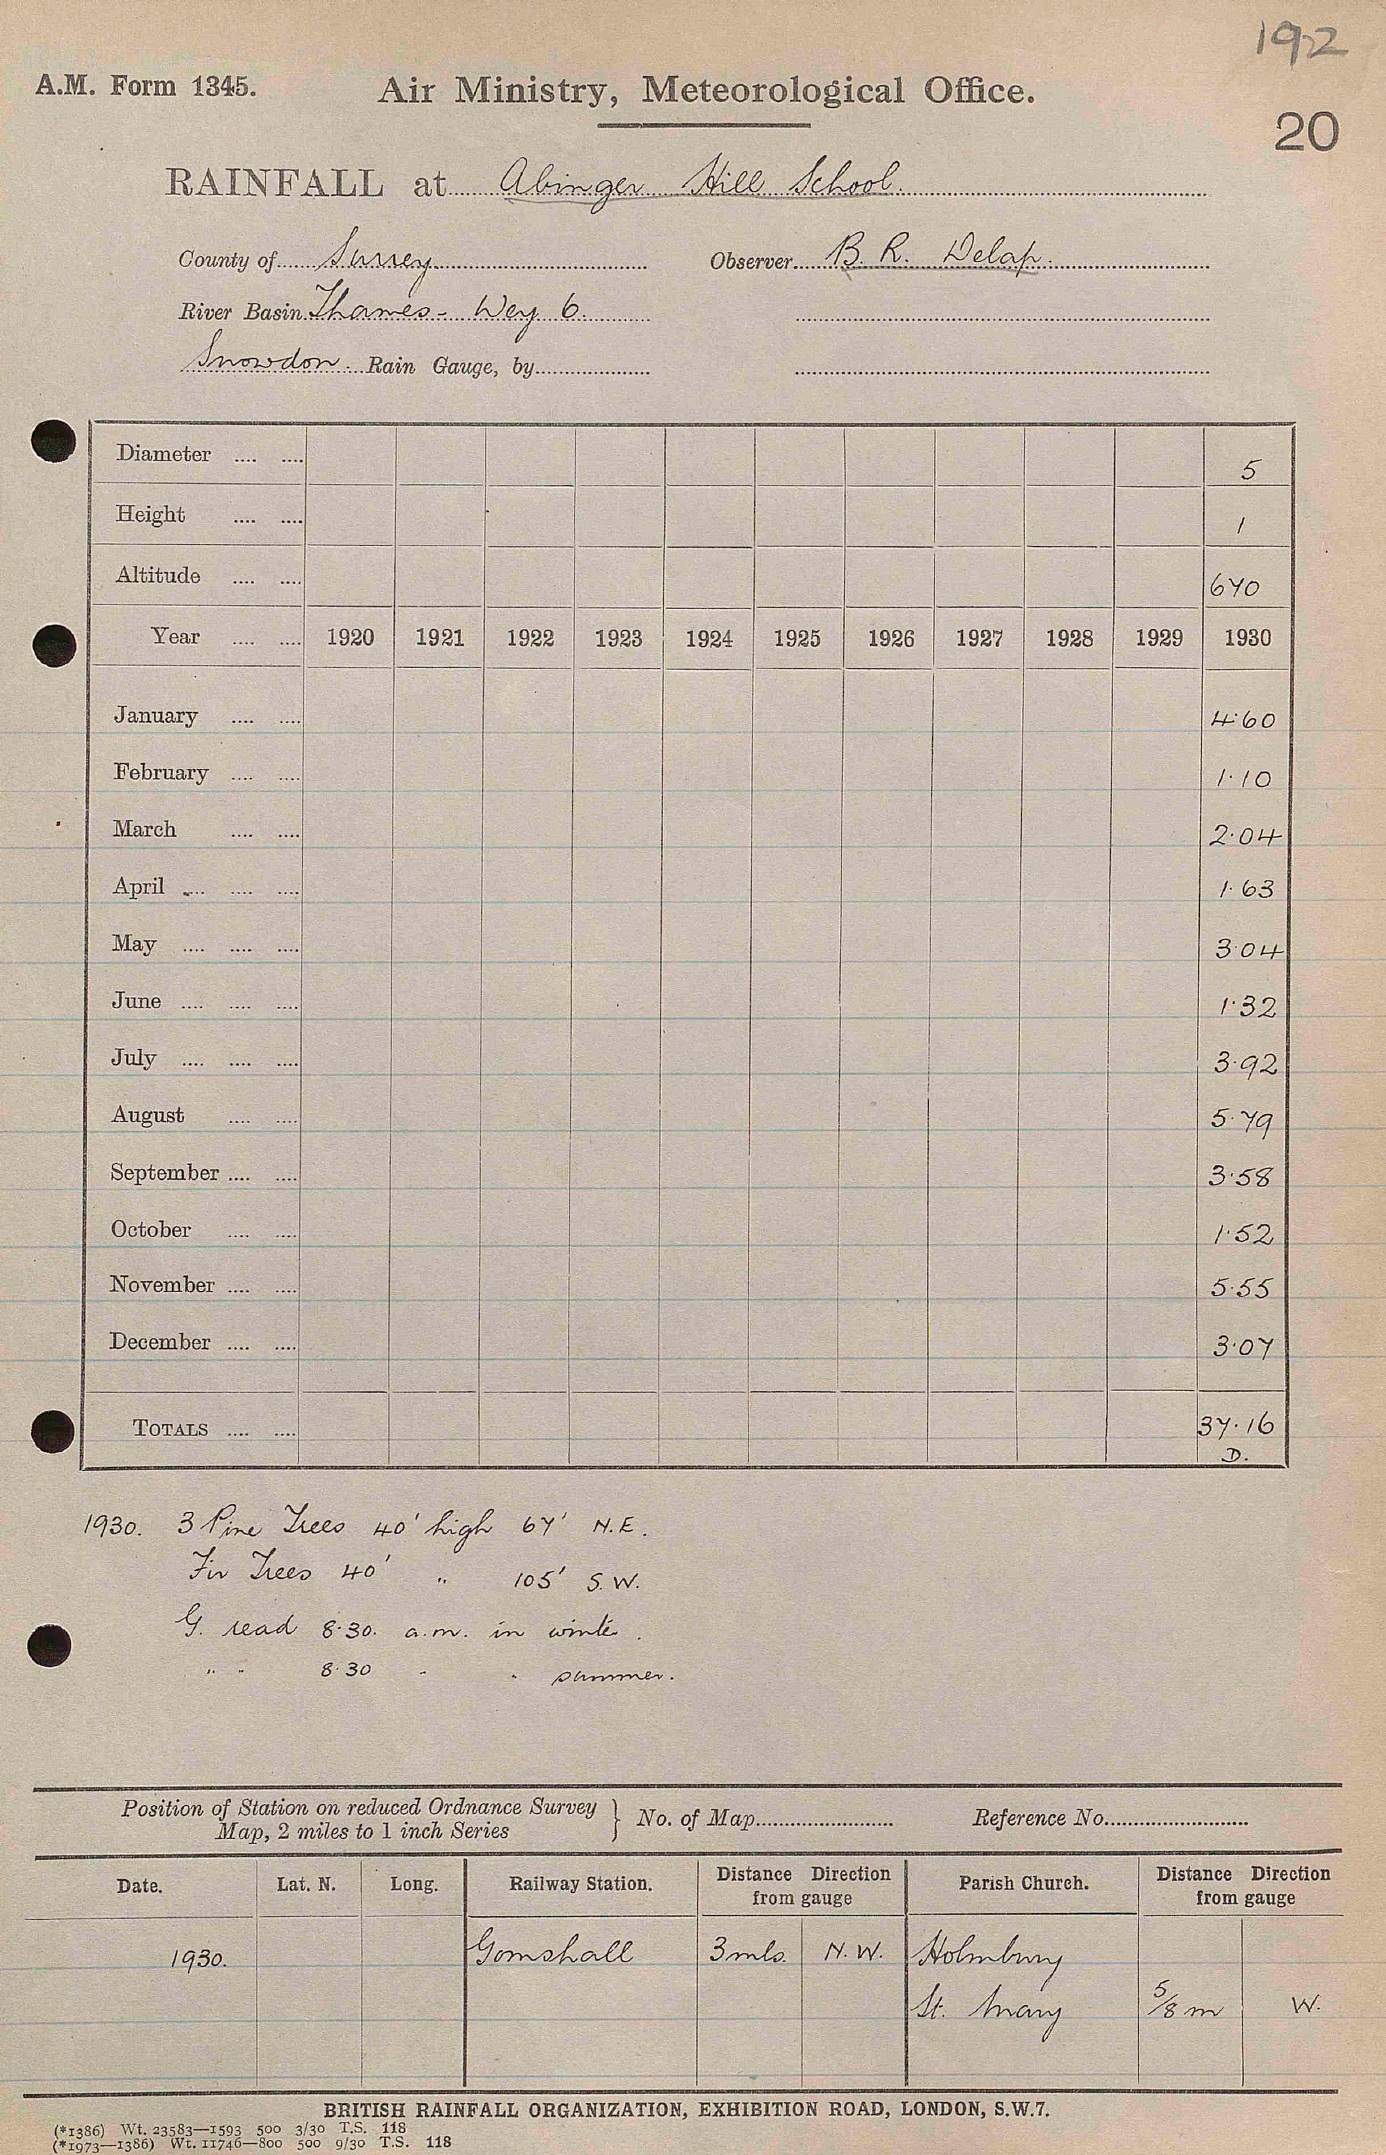 192
A.M. Form 1345. Air Ministry, Meteorological Office.
20
RAINFALL at Abinger Hill School.
County of Surrey Observer B. R. Delap.
River Basin Thames - Wey 6.
Snowdon. Rain Gauge, by
Diameter 5
Height 1
Altitude 670
Year 1920 1921 1922 1923 1924 1925 1926 1927 1928 1929 1930
January 4.60
February 1.10
March 2.04
April 1.63
May 3.04
June 1.32
July 3.92
August 5.79
September 3.58
October 1.52
November 5.55
December 3.07
TOTALS 37.16
D.
1930. 3 Pine Trees 40' high 67' N.E.
Fir Trees 40' " 105' S.W.
G. read 8.30. a.m. in winter.
" " 8.30 " " summer.
Position of Station on reduced Ordnance Survey Map, 2 miles to 1 inch Series } No. of Map Reference No.
Date. Lat. N. Long. Railway Station. Distance Direction from gauge Parish Church. Distance Direction from gauge
1930. Gomshall 3 mls. N.W. Holmbury
St. Mary 5/8 m W.
BRITISH RAINFALL ORGANIZATION, EXHIBITION ROAD, LONDON, S.W.7.
(*1386) Wt. 23583—1593 500 3/30 T.S. 118
(*1973—1386) Wt. 11746—800 500 9/30 T.S. 118